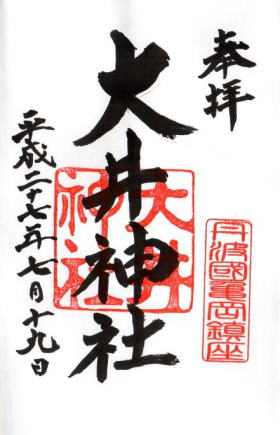 奉拝
丹波國亀岡鎮座
大井神社
大井神社
平成二十七年七月十九日